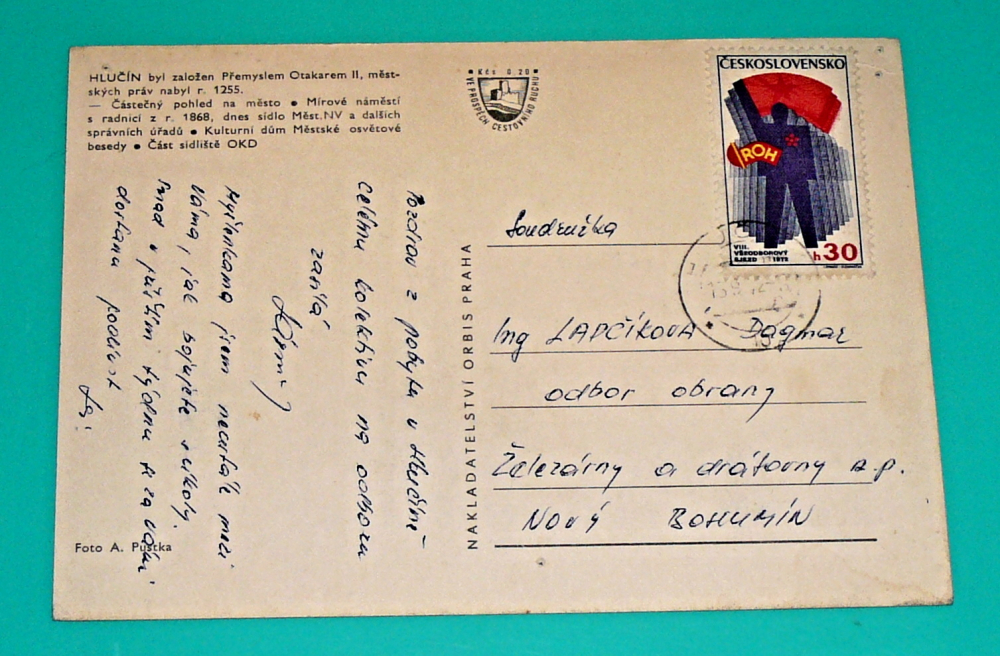 HLUČÍN byl založen Přemyslem Otakarem II, měst-
ských práv nabyl r. 1255.
— Částečný pohled na město • Mírové náměstí
s radnicí z r. 1868, dnes sídlo Měst.NV a dalších
správních úřadů • Kulturní dům Městské osvětové
besedy • Část sídliště OKD
Kčs 0,20
VE PROSPĚCH CESTOVNÍHO RUCHU
ČESKOSLOVENSKO
ROH
VIII.
VŠEODBOROVÝ
SJEZD 1972
h30
Pozdrav z pobytu v Hlučíně
celému kolektivu na odboru
zasílá
Myšlenkama jsem neustále mezi
Váma, jak bojujete s úkoly.
Snad v příštím týdnu se za vámi
dostanu podívat
NAKLADATELSTVÍ ORBIS PRAHA
Soudružka
Ing LAPČÍKOVÁ Dagmar
odbor obrany
Železárny a drátovny n.p.
NOVÝ BOHUMÍN
Foto A. Pustka